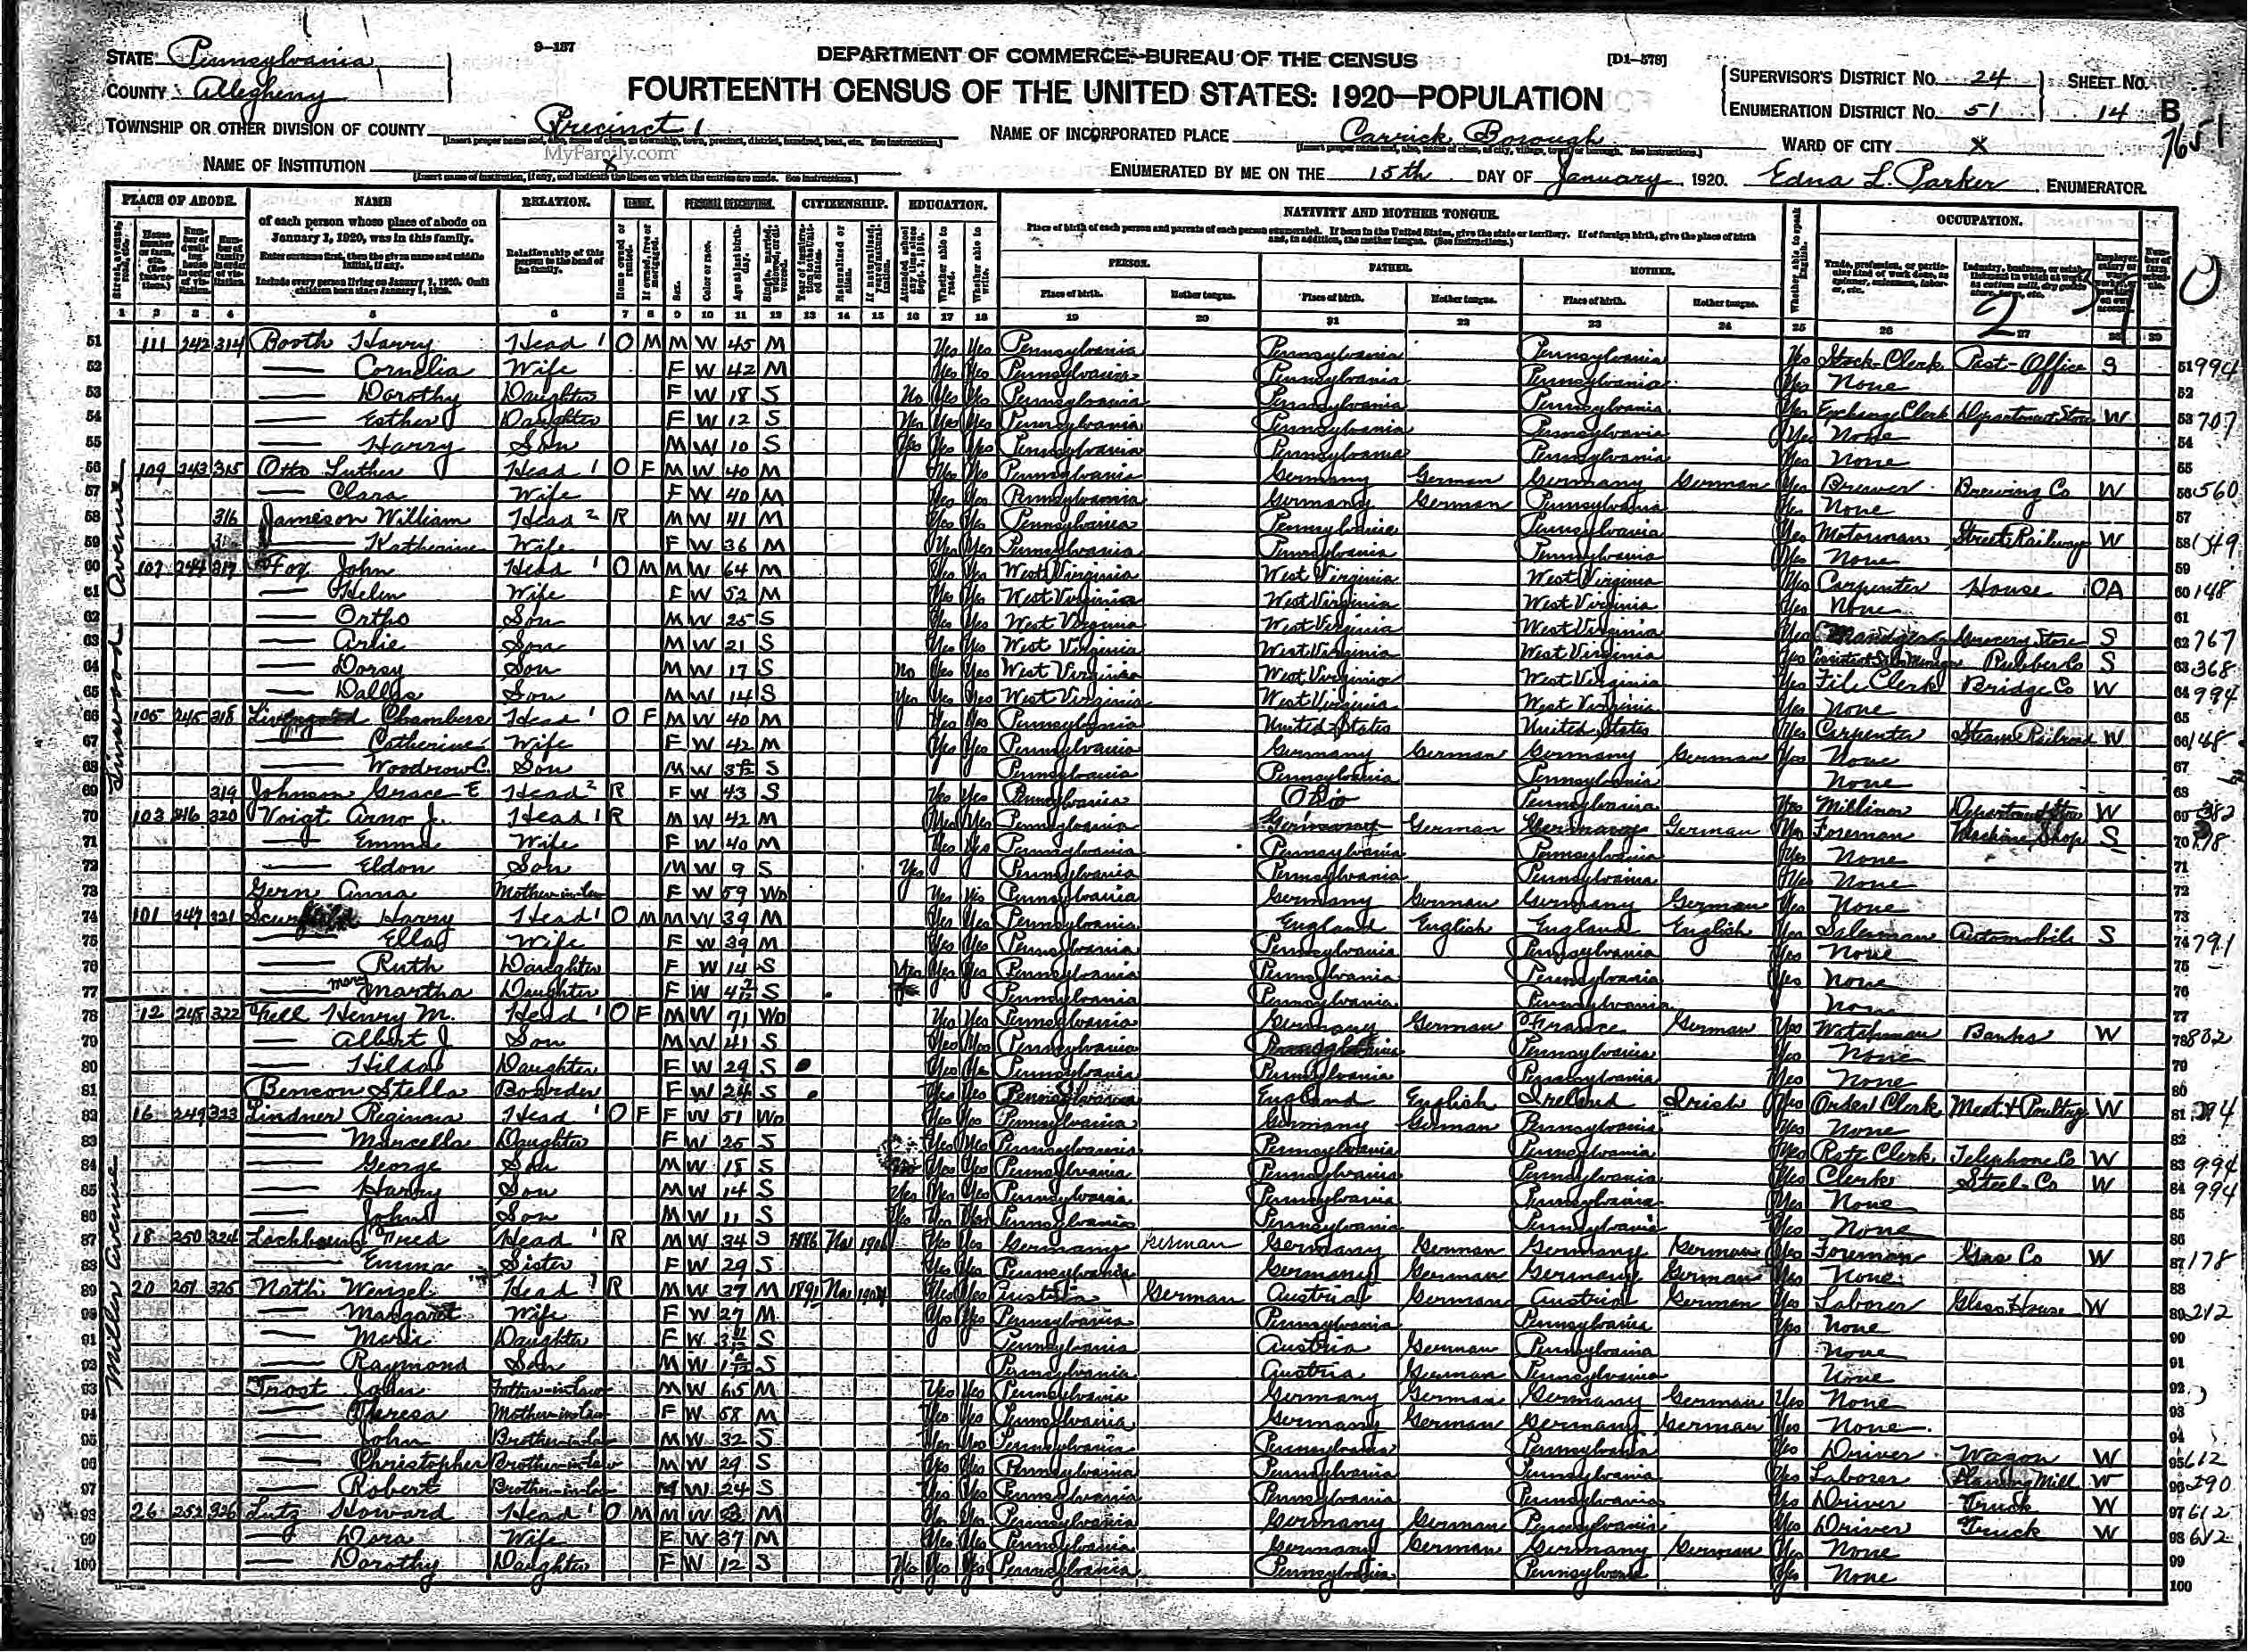 9-137
DEPARTMENT OF COMMERCE—BUREAU OF THE CENSUS
[D1-578]
STATE Pennsylvania
COUNTY Allegheny
FOURTEENTH CENSUS OF THE UNITED STATES: 1920—POPULATION
SUPERVISOR'S DISTRICT NO. 24
ENUMERATION DISTRICT NO. 51
SHEET NO. 14 B
7651
TOWNSHIP OR OTHER DIVISION OF COUNTY Precinct 1
NAME OF INCORPORATED PLACE Carrick Borough
WARD OF CITY X
MyFamily.com
NAME OF INSTITUTION X
ENUMERATED BY ME ON THE 15th DAY OF January, 1920. Edna L. Parker ENUMERATOR.
PLACE OF ABODE. NAME RELATION. TENURE. PERSONAL DESCRIPTION. CITIZENSHIP. EDUCATION. NATIVITY AND MOTHER TONGUE. OCCUPATION.
of each person whose place of abode on January 1, 1920, was in this family.
Enter surname first, then the given name and middle initial, if any.
Include every person living on January 1, 1920. Omit children born since January 1, 1920.
Relationship of this person to the head of the family.
Place of birth of each person and parents of each person enumerated. If born in the United States, give the state or territory. If of foreign birth, give the place of birth and, in addition, the mother tongue. (See instructions.)
PERSON. FATHER. MOTHER.
Place of birth. Mother tongue. Place of birth. Mother tongue. Place of birth. Mother tongue.
1 2 3 4 5 6 7 8 9 10 11 12 13 14 15 16 17 18 19 20 21 22 23 24 25 26 27 28 29
Linwood Avenue
51 111 242 314 Booth Harry Head 1 O M M W 45 M Yes Yes Pennsylvania Pennsylvania Pennsylvania Yes Stock Clerk Post-Office 51 994
52 — Cornelia Wife F W 42 M Yes Yes Pennsylvania Pennsylvania Pennsylvania Yes None 52
53 — Dorothy Daughter F W 18 S No Yes Yes Pennsylvania Pennsylvania Pennsylvania Yes Exchange Clerk Department Store W 53 707
54 — Esther Daughter F W 12 S Yes Yes Yes Pennsylvania Pennsylvania Pennsylvania Yes None 54
55 — Harry Son M W 10 S Yes Yes Yes Pennsylvania Pennsylvania Pennsylvania Yes None 55
56 109 243 315 Otto Luther Head 1 O F M W 40 M Yes Yes Pennsylvania Germany German Germany German Yes Brewer Brewing Co W 56 560
57 — Clara Wife F W 40 M Yes Yes Pennsylvania Germany German Pennsylvania Yes None 57
58 316 Jameson William Head 2 R M W 41 M Yes Yes Pennsylvania Pennsylvania Pennsylvania Yes Motorman Street Railway W 58
59 — Katherine Wife F W 36 M Yes Yes Pennsylvania Pennsylvania Pennsylvania Yes None 59
60 107 244 317 Fox John Head 1 O M M W 64 M Yes Yes West Virginia West Virginia West Virginia Yes Carpenter House OA 60 148
61 — Helen Wife F W 52 M Yes Yes West Virginia West Virginia West Virginia Yes None 61
62 — Ortho Son M W 25 S Yes Yes West Virginia West Virginia West Virginia Yes Manager Grocery Store S 62 767
63 — Arlie Son M W 21 S Yes Yes West Virginia West Virginia West Virginia Yes Rubber Co S 63 368
64 — Dorsy Son M W 17 S No Yes Yes West Virginia West Virginia West Virginia Yes File Clerk Bridge Co W 64 994
65 — Dallas Son M W 14 S Yes Yes Yes West Virginia West Virginia West Virginia Yes None 65
66 105 245 318 Chambers Head 1 O F M W 40 M Yes Yes Pennsylvania United States United States Yes Carpenter Steam Railroad W 66 148
67 — Catherine Wife F W 42 M Yes Yes Pennsylvania Germany German Germany German Yes None 67
68 — Woodrow C. Son M W S Pennsylvania Pennsylvania Pennsylvania None 68
69 319 Johnson Grace E Head 2 R F W 43 S Yes Yes Pennsylvania Ohio Pennsylvania Yes Milliner Department Store W 69 382
70 103 246 320 Voigt Arno J. Head 1 R M W 42 M Yes Yes Pennsylvania Germany German Germany German Yes Foreman Machine Shop S 70
71 — Emma Wife F W 40 M Yes Yes Pennsylvania Pennsylvania Pennsylvania Yes None 71
72 — Eldon Son M W 9 S Yes Pennsylvania Pennsylvania Pennsylvania Yes None 72
73 Gern Anna Mother-in-law F W 59 Wd Yes Yes Pennsylvania Germany German Germany German Yes None 73
74 101 247 321 Harry Head 1 O M M W 39 M Yes Yes Pennsylvania England English England English Yes Salesman Automobile S 74 791
75 — Ella Wife F W 39 M Yes Yes Pennsylvania Pennsylvania Pennsylvania Yes None 75
76 — Ruth Daughter F W 14 S Yes Yes Yes Pennsylvania Pennsylvania Pennsylvania Yes None 76
77 — Mary Martha Daughter F W S Pennsylvania Pennsylvania Pennsylvania None 77
Miller Avenue
78 12 248 322 Fell Henry M. Head 1 O F M W 71 Wd Yes Yes Pennsylvania Germany German France German Yes Watchman Banks W 78 832
79 — Albert J Son M W 41 S Yes Yes Pennsylvania Pennsylvania Pennsylvania Yes None 79
80 — Hilda Daughter F W 29 S Yes Yes Pennsylvania Pennsylvania Pennsylvania Yes None 80
81 Benson Stella Boarder F W 24 S Yes Yes Pennsylvania England English Ireland Irish Yes Order Clerk Meat & Poultry W 81
82 16 249 323 Lindner Regina Head 1 O F F W 51 Wd Yes Yes Pennsylvania Germany German Pennsylvania Yes None 82
83 — Marcella Daughter F W 25 S Yes Yes Pennsylvania Pennsylvania Pennsylvania Yes Rate Clerk Telephone Co W 83 994
84 — George Son M W 18 S Yes Yes Pennsylvania Pennsylvania Pennsylvania Yes Clerk Steel Co W 84 994
85 — Harry Son M W 14 S Yes Yes Yes Pennsylvania Pennsylvania Pennsylvania Yes None 85
86 — John Son M W 11 S Yes Yes Yes Pennsylvania Pennsylvania Pennsylvania Yes None 86
87 18 250 324 Fred Head 1 R M W 34 S 1886 Na Yes Yes Germany German Germany German Germany German Yes Foreman Gas Co W 87 178
88 — Emma Sister F W 29 S Yes Yes Pennsylvania Germany German Germany German Yes None 88
89 20 251 325 Wenzel Head 1 R M W 37 M 1891 Na Yes Yes Austria German Austria German Austria German Yes Laborer Glass House W 89 212
90 — Margaret Wife F W 27 M Yes Yes Pennsylvania Pennsylvania Pennsylvania Yes None 90
91 — Marie Daughter F W S Pennsylvania Austria German Pennsylvania None 91
92 — Raymond Son M W S Pennsylvania Austria German Pennsylvania None 92
93 Trost John Father-in-law M W 65 M Yes Yes Pennsylvania Germany German Germany German Yes None 93
94 — Theresa Mother-in-law F W 58 M Yes Yes Pennsylvania Germany German Germany German Yes None 94
95 — John Brother-in-law M W 32 S Yes Yes Pennsylvania Pennsylvania Pennsylvania Yes Driver Wagon W 95 612
96 — Christopher Brother-in-law M W 29 S Yes Yes Pennsylvania Pennsylvania Pennsylvania Yes Laborer Planing Mill W 96 290
97 — Robert Brother-in-law M W 24 S Yes Yes Pennsylvania Pennsylvania Pennsylvania Yes Driver Truck W 97 612
98 26 252 326 Lutz Howard Head 1 O M M W 33 M Yes Yes Pennsylvania Germany German Pennsylvania Yes Driver Truck W 98 612
99 — Dora Wife F W 37 M Yes Yes Pennsylvania Germany German Germany German Yes None 99
100 — Dorothy Daughter F W 12 S Yes Yes Yes Pennsylvania Pennsylvania Pennsylvania Yes None 100